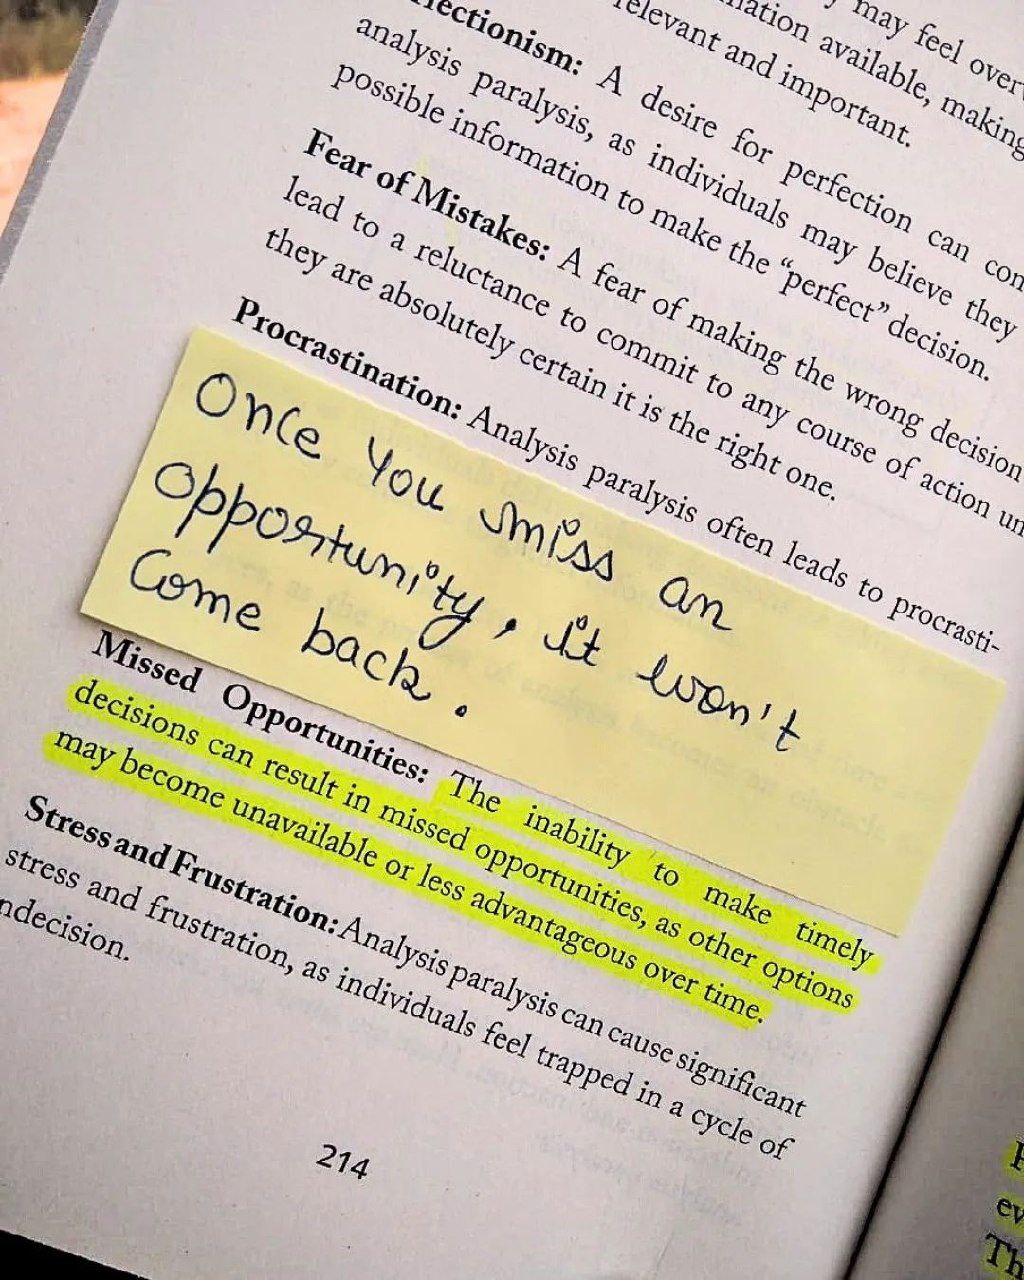 may feel over
mation available, making
relevant and important.
ectionism: A desire for perfection can con
analysis paralysis, as individuals may believe they
possible information to make the "perfect" decision.
Fear of Mistakes: A fear of making the wrong decision
lead to a reluctance to commit to any course of action un
they are absolutely certain it is the right one.
Procrastination: Analysis paralysis often leads to procrasti-
Once You miss an
opportunity, it won't
Come back.
Missed Opportunities: The inability to make timely
decisions can result in missed opportunities, as other options
may become unavailable or less advantageous over time.
Stress and Frustration: Analysis paralysis can cause significant
stress and frustration, as individuals feel trapped in a cycle of
ndecision.
214
ev
Th